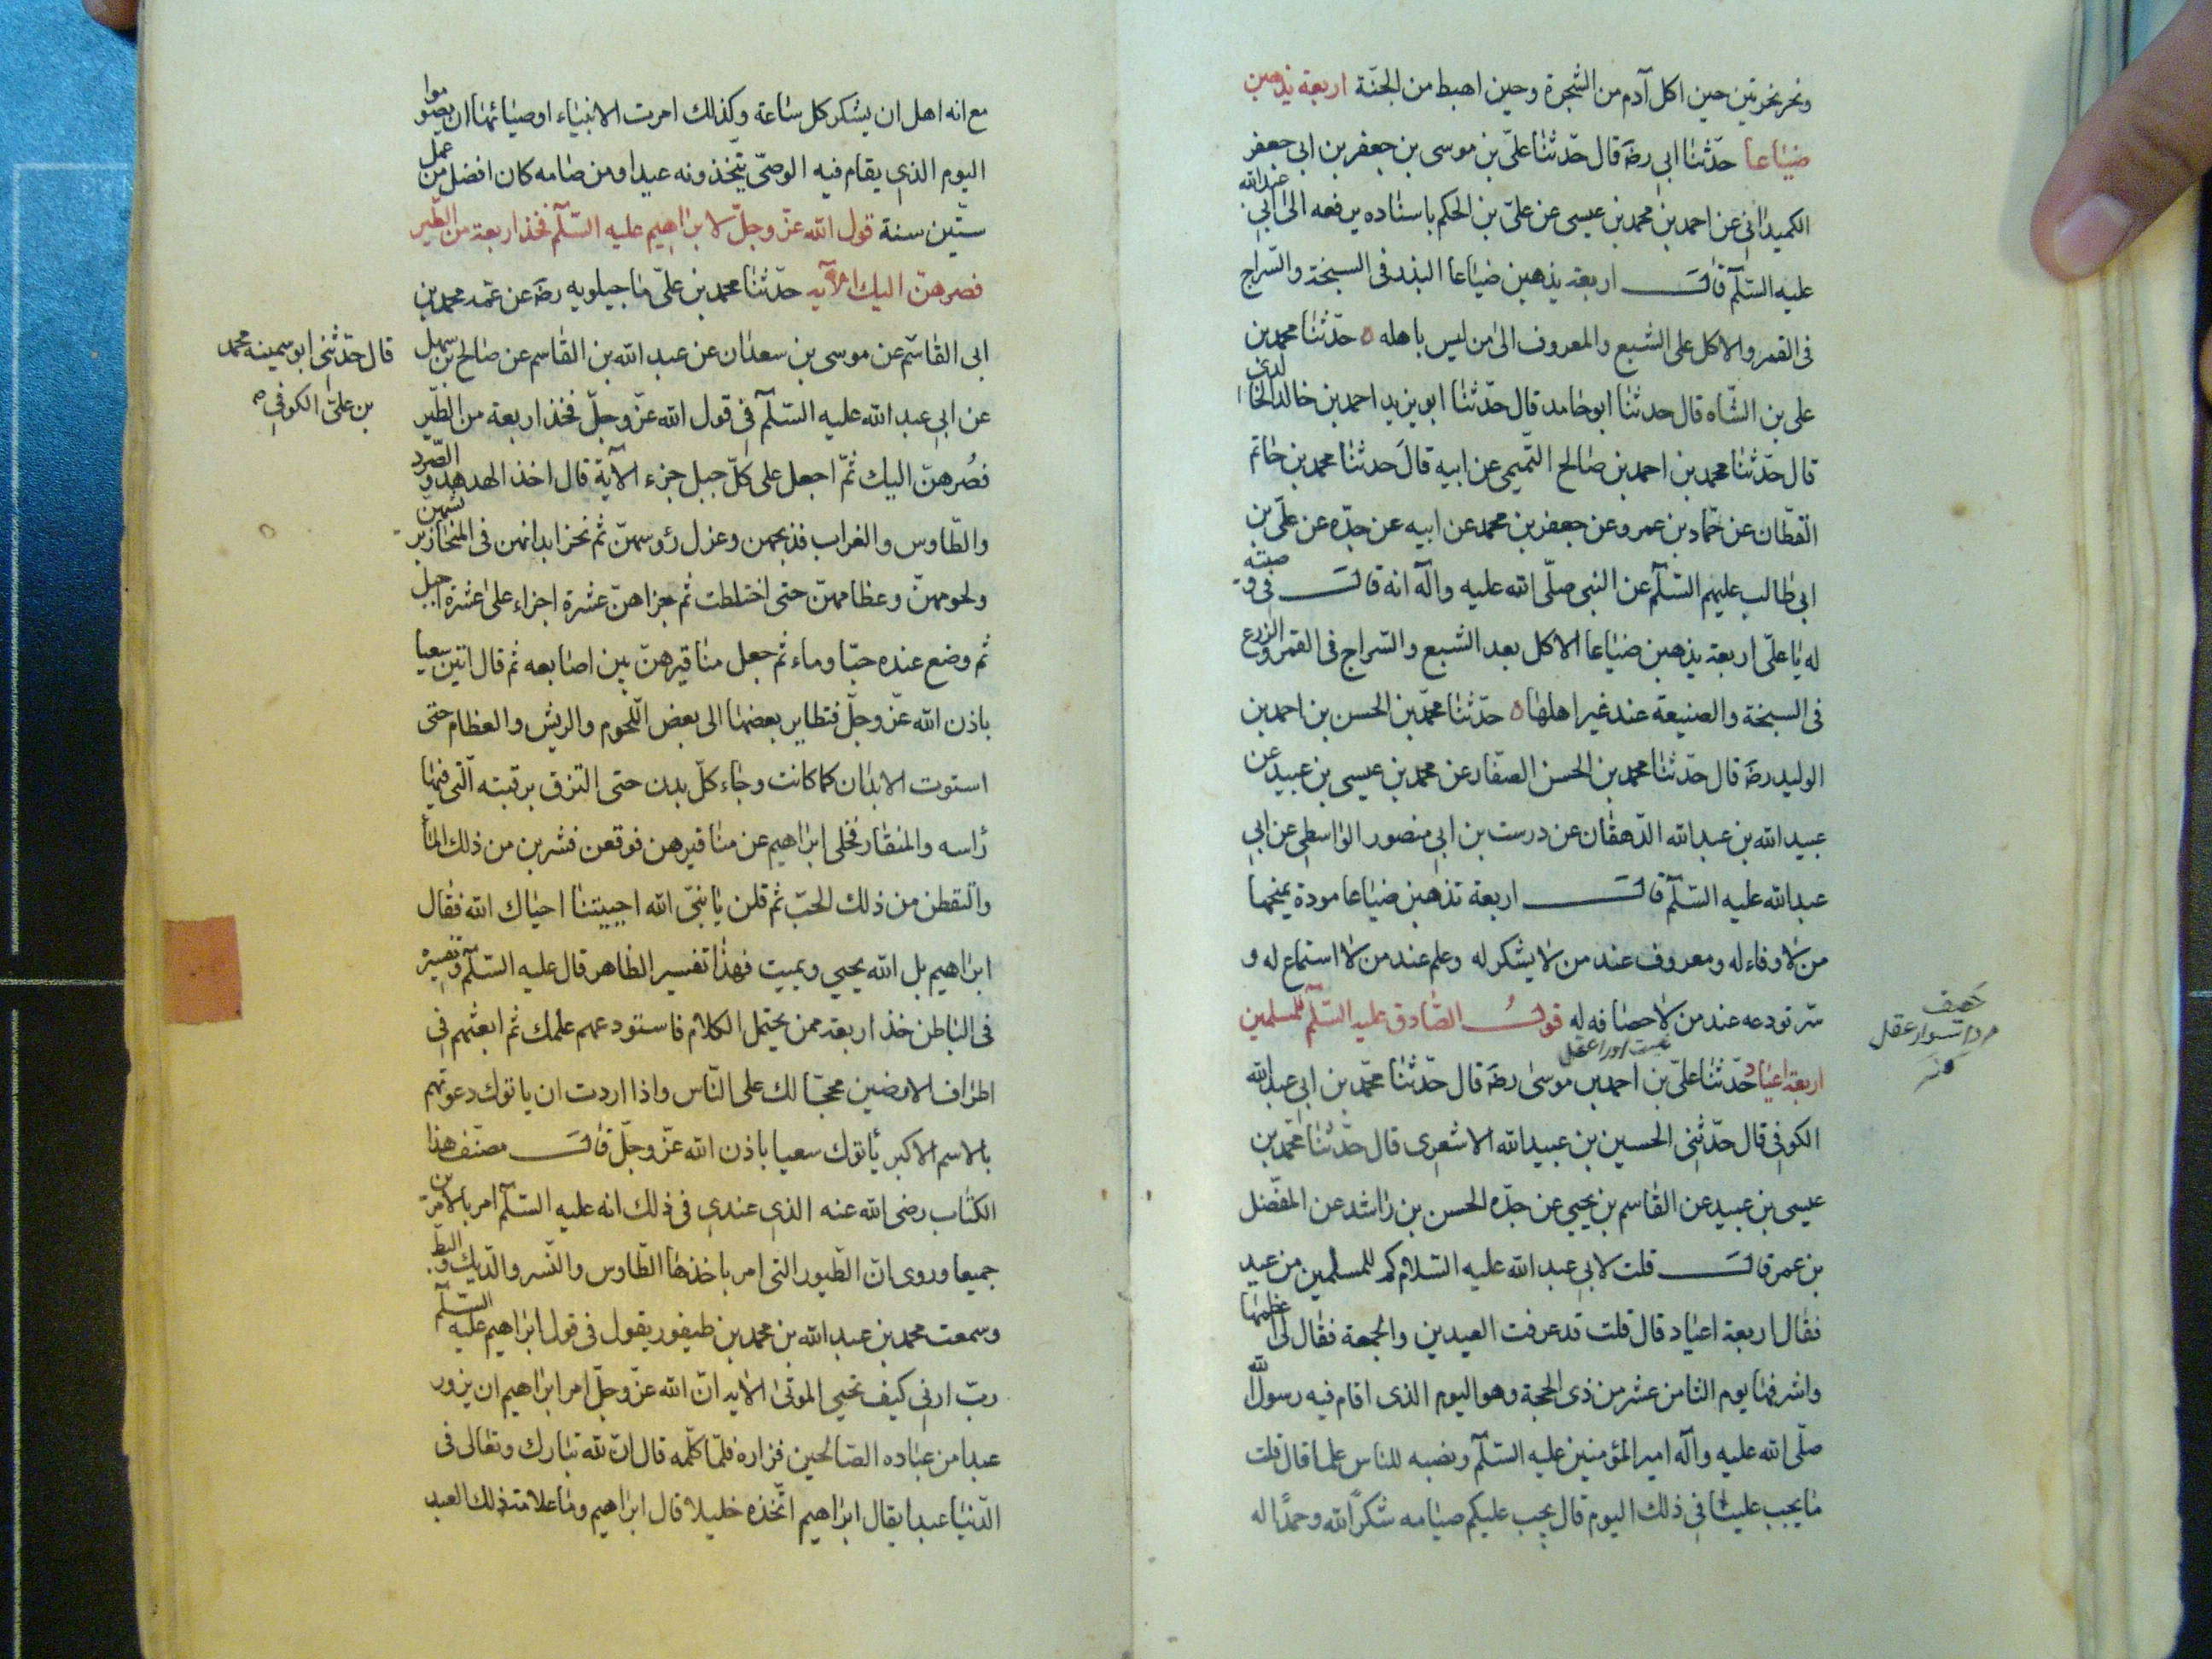 ونخر نخرتين حين اكل آدم من الشجرة وحين اهبط من الجنّة اربعة يذهبن
ضياعا حدّثنا ابي رضَ قال حدّثنا علىّ بن موسى بن جعفر بن ابى جعفر
الكميدانى عن احمد بن محمد بن عيسى عن علىّ بن الحكم باسناده يرفعه الى ابى عبد الله
عليه السّلَم قال اربعة يذهبن ضياعا البذر فى السبخة والسّراج
فى القمر والاكل على الشبع والمعروف الى من ليس باهله ٥ حدّثنا محمد بن
على بن الشّاه قال حدثنا ابو حامد قال حدّثنا ابو يزيد احمد بن خالد الخالدى
قال حدّثنا محمد بن احمد بن صالح التّميمى عن ابيه قال حدثنا محمد بن حاتم
القطّان عن حمّاد بن عمرو عن جعفر بن محمد عن ابيه عن جدّه عن علىّ بن
ابى طالب عليهم السّلَم عن النبى صلّى الله عليه وآله انه قال فى وصيّته
له يا علىّ اربعة يذهبن ضياعا الاكل بعد الشبع والسّراج فى القمر والزرع
فى السبخة والصنيعة عند غير اهلها ٥ حدّثنا محمّد بن الحسن بن احمد بن
الوليد رضَ قال حدّثنا محمد بن الحسن الصفّار عن محمد بن عيسى بن عبيد عن
عبيد الله بن عبد الله الدّهقان عن درست بن ابى منصور الواسطى عن ابى
عبد الله عليه السّلَم قال اربعة تذهبن ضياعا مودة يمنحها
من لا وفاء له ومعروف عند من لا يشكر له وعلم عند من لا استماع له و
سرّ تودعه عند من لا حصافه له قول الصّادق عليه السّلَم للمسلمين
حصف
اربعة اعياد حدّثنا علىّ بن احمد بن موسى رضَ قال حدّثنا محمّد بن ابى عبد الله
الكوفى قال حدّثنى الحسين بن عبيد الله الاشعرى قال حدّثنا محمّد بن
عيسى بن عبيد عن القاسم بن يحيى عن جدّه الحسن بن راشد عن المفضّل
بن عمر قال قلت لابى عبد الله عليه السّلام كم للمسلمين من عيد
فقال اربعة اعياد قال قلت قد عرفت العيدين والجمعة فقال لى اعظمها
واشرفها يوم الثامن عشر من ذى الحجة وهو اليوم الذى اقام فيه رسول الله
صلّى الله عليه وآله امير المؤمنين عليه السّلَم ونصبه للناس علما قال قلت
ما يجب علينا فى ذلك اليوم قال يجب عليكم صيامه شكرًا لله وحمدًا له
مع انه اهل ان يشكر كل ساعة وكذلك امرت الانبياء اوصيائها ان يصوموا
اليوم الذى يقام فيه الوصىّ يتّخذونه عيدا ومن صامه كان افضل من عمل
ستّين سنة قول الله عزّ وجلّ لابراهيم عليه السّلَم فخذ اربعة من الطّير
فصرهنّ اليك الآيه حدّثنا محمد بن علىّ ماجيلويه رضَ عن عمّه محمد بن
ابى القاسم عن موسى بن سعدان عن عبد الله بن القاسم عن صالح بن سهل
قال حدّثنى ابو سمينه محمد
بن علىّ الكوفى
عن ابى عبد الله عليه السّلَم فى قول الله عزّ وجلّ فخذ اربعة من الطّير
فصُرهنّ اليك ثمّ اجعل على كلّ جبل جزء الآية قال اخذ الهدهد والصّرد
والطّاوس والغراب فذبحهن وعزل رؤوسهنّ ثم نخز ابدانهن فى المنحاز بريشهن
ولحومهنّ وعظامهنّ حتى اختلطت ثم جزاهنّ عشرة اجزاء على عشرة اجبل
ثم وضع عنده حبّا وماء ثم جعل مناقيرهنّ بين اصابعه ثم قال اتين سعيا
باذن الله عزّ وجلّ فتطاير بعضها الى بعض اللّحوم والريش والعظام حتى
استوت الابدان كما كانت وجاء كلّ بدن حتى التزق برقبته الّتى فيها
رأسه والمنقار فخلى ابراهيم عن مناقيرهن فوقعن فشربن من ذلك الماء
والتقطن من ذلك الحبّ ثم قلن يا نبىّ الله احييتنا احياك الله فقال
ابراهيم بل الله يحيي ويميت فهذا تفسير الظاهر قال عليه السّلَم وتفسيره
فى الباطن خذ اربعة ممن يحتمل الكلام فاستودعهم علمك ثم ابعثهم فى
اطراف الارضين حججا لك على النّاس واذا اردت ان ياتوك دعوتهم
بالاسم الاكبر يأتوك سعيا باذن الله عزّ وجلّ قال مصنّف هذا
الكتاب رضى الله عنه الذى عندى فى ذلك انه عليه السّلَم امر بالامرين
جميعا وروى انّ الطّيور التى امر باخذها الطّاوس والنّسر والدّيك والبطّ
وسمعت محمد بن عبد الله بن محمد بن طيفور يقول فى قول ابراهيم عليه السّلَم
ربّ ارنى كيف تحيي الموتى الايه انّ الله عزّ وجلّ امر ابراهيم ان يزور
عبدا من عباده الصّالحين فزاره فلمّا كلّمه قال انّ لله تبارك وتعالى فى
الدّنيا عبدا يقال ابراهيم اتّخذه خليلا قال ابراهيم وما علامة ذلك العبد